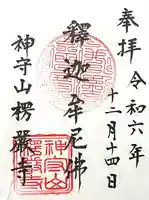 奉拝
令和六年
十二月十四日
釋迦牟尼佛
神守山楞嚴寺